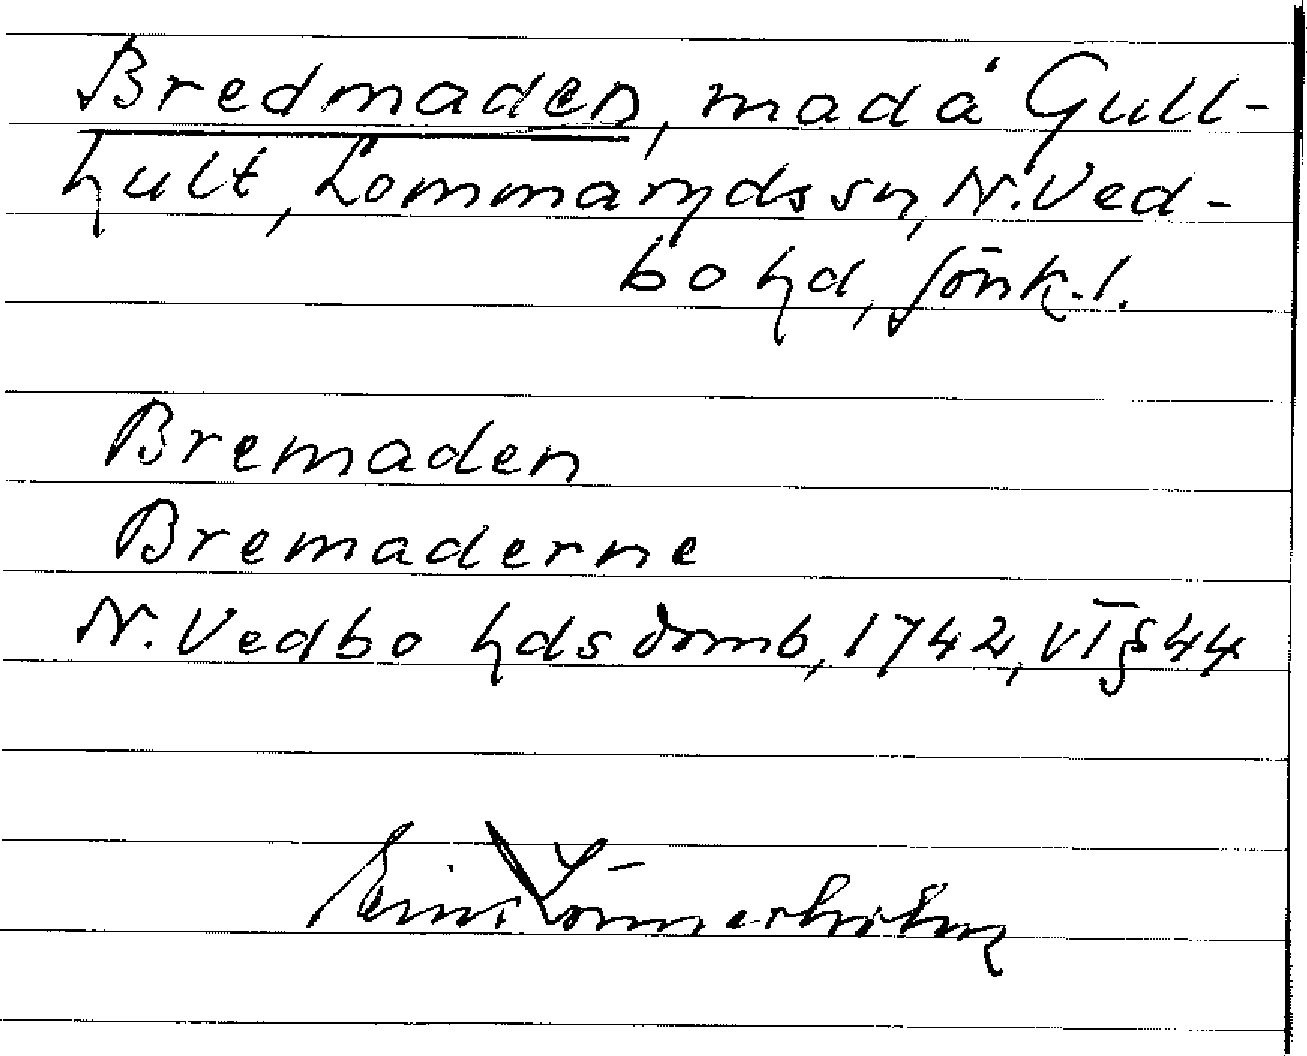 Bredmaden, mad å Gull-
hult, Lommaryds sn, N. Ved-
bo hd, Jönk. l.
Bremaden
Bremaderne
N. Vedbo hds domb, 1742, VI § 44